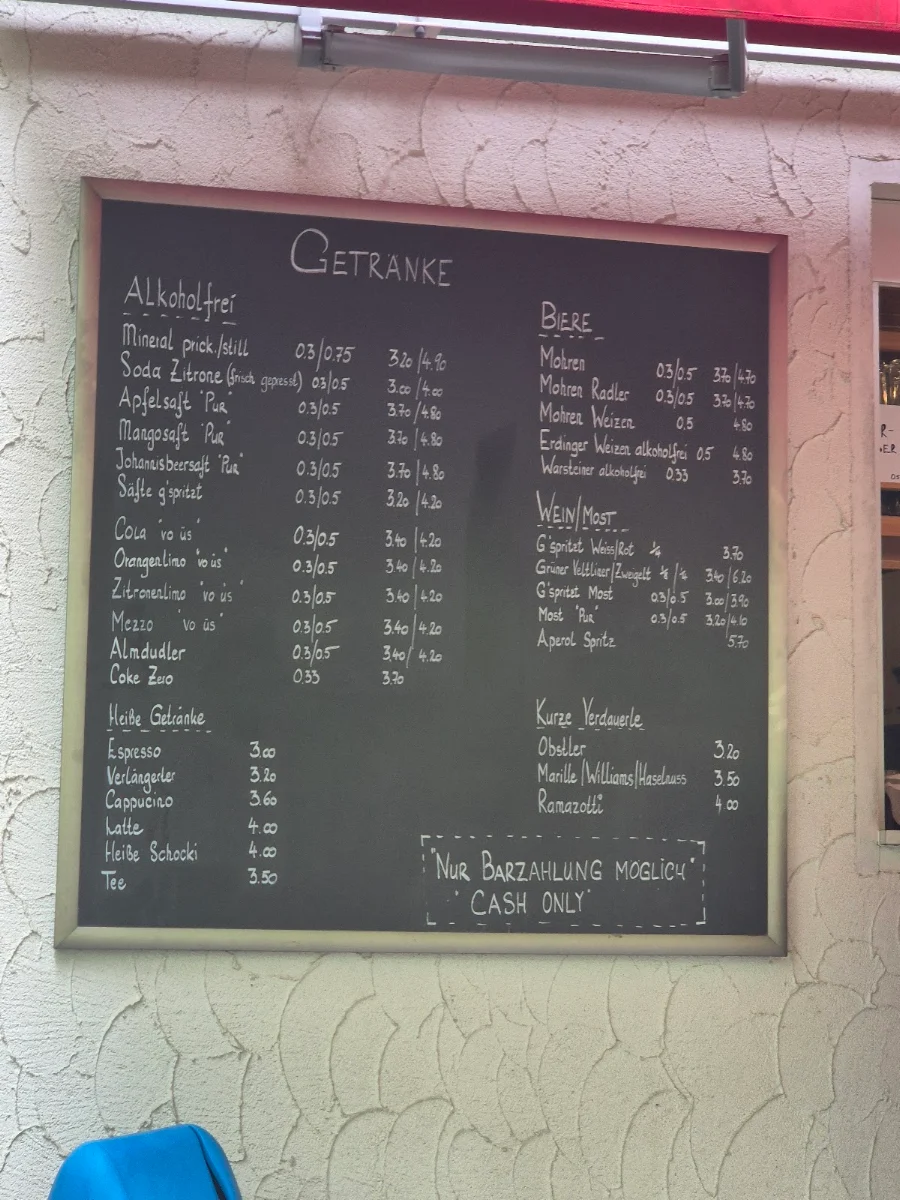 GETRÄNKE
Alkoholfrei
Mineral prick./still 0.3/0.75 3.20/4.90
Soda Zitrone (frisch gepresst) 0.3/0.5 3.00/4.00
Apfelsaft "Pur" 0.3/0.5 3.70/4.80
Mangosaft "Pur" 0.3/0.5 3.70/4.80
Johannisbeersaft "Pur" 0.3/0.5 3.70/4.80
Säfte g'spritzt 0.3/0.5 3.20/4.20
Cola "vo üs" 0.3/0.5 3.40/4.20
Orangenlimo "vo üs" 0.3/0.5 3.40/4.20
Zitronenlimo "vo üs" 0.3/0.5 3.40/4.20
Mezzo "vo üs" 0.3/0.5 3.40/4.20
Almdudler 0.3/0.5 3.40/4.20
Coke Zero 0.33 3.70
Heiße Getränke
Espresso 3.00
Verlängerter 3.20
Cappucino 3.60
Latte 4.00
Heiße Schocki 4.00
Tee 3.50
BIERE
Mohren 0.3/0.5 3.70/4.70
Mohren Radler 0.3/0.5 3.70/4.70
Mohren Weizen 0.5 4.80
Erdinger Weizen alkoholfrei 0.5 4.80
Warsteiner alkoholfrei 0.33 3.70
WEIN/MOST
G'spritzt Weiss/Rot 1/4 3.70
Grüner Veltliner/Zweigelt 1/8 / 1/4 3.40/6.20
G'spritzt Most 0.3/0.5 3.00/3.90
Most "Pur" 0.3/0.5 3.20/4.10
Aperol Spritz 5.70
Kurze Verdauerle
Obstler 3.20
Marille/Williams/Haselnuss 3.50
Ramazotti 4.00
"NUR BARZAHLUNG MÖGLICH"
"CASH ONLY"